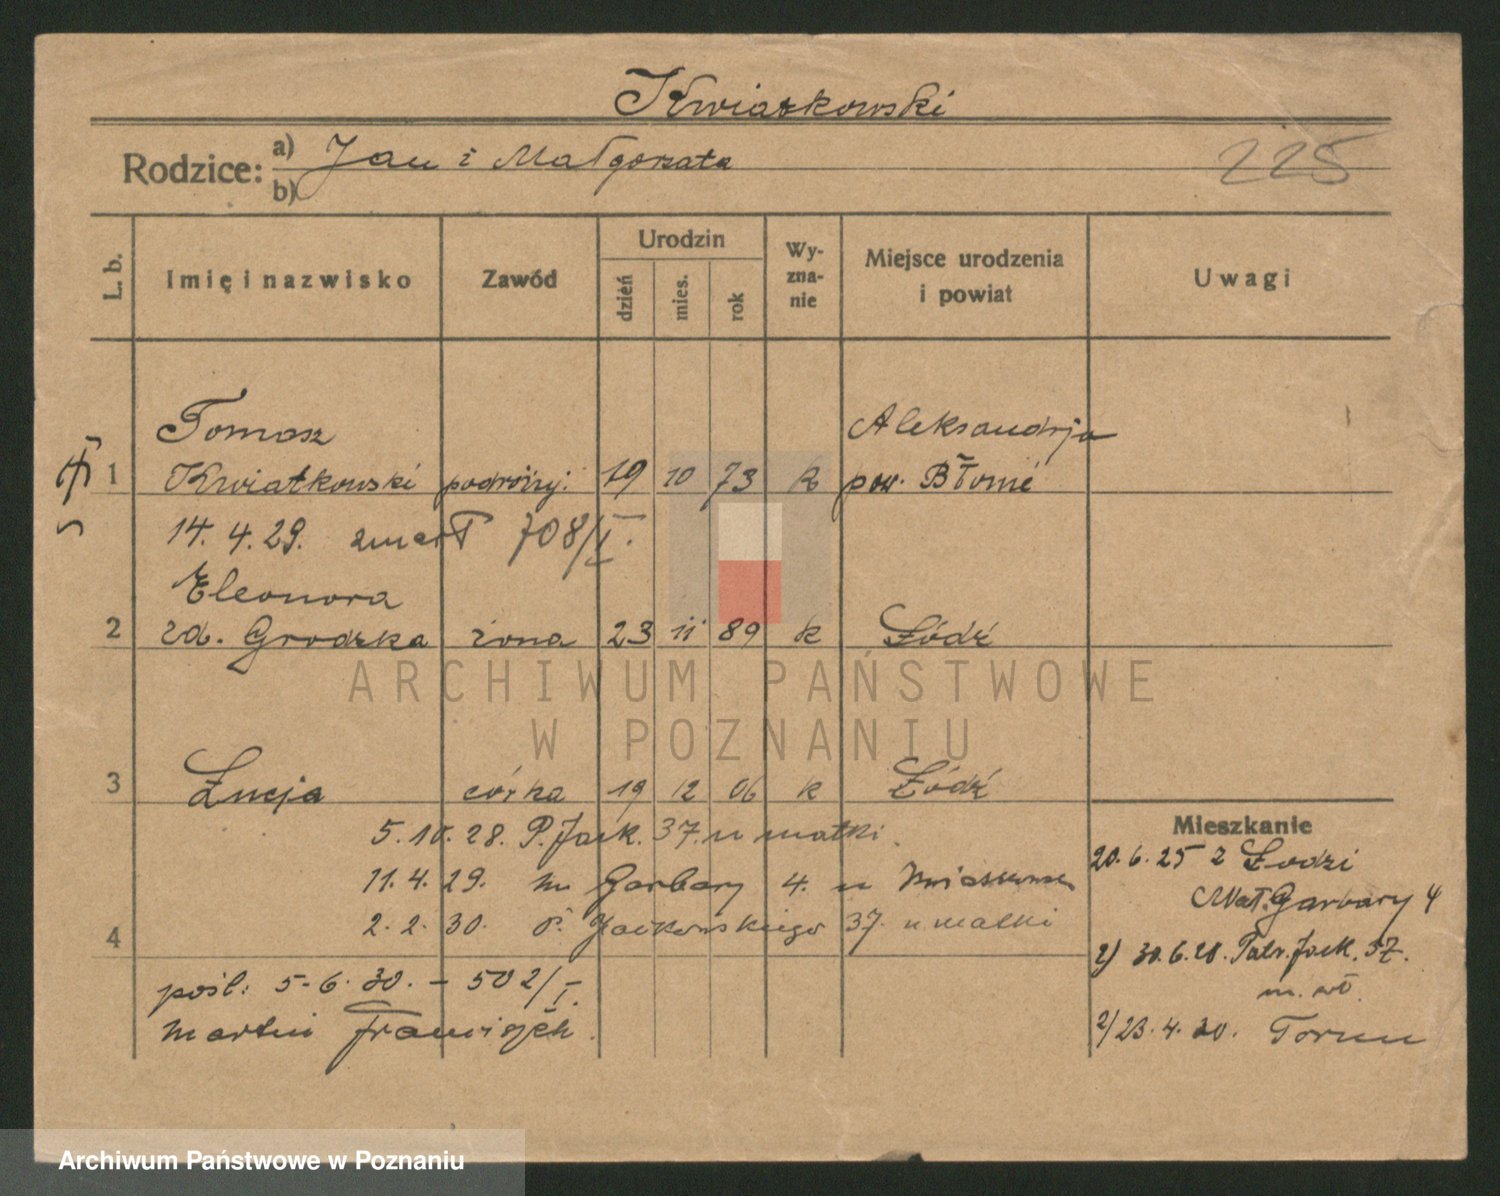 Kwiatkowski
Rodzice: a) Jan i Małgorzata
b)
225
L. b.
Imię i nazwisko
Zawód
Urodzin
dzień
mies.
rok
Wy-
zna-
nie
Miejsce urodzenia
i powiat
Uwagi
Tomasz
Aleksandrja
1 Kwiatkowski podróżuj. 19 10 73 k pow. Błonie
14. 4. 29. zmarł 708/I.
Eleonora
2 zd. Grodzka żona 23 11 89 k Łódź
ARCHIWUM PAŃSTWOWE
W POZNANIU
3 Łucja córka 19 12 06 k Łódź
5. 10. 28. P. Jack. 37. u matki.
11. 4. 29. Garbary 4. u
2. 2. 30. P. Jackowskiego 37. u matki
4
pośl: 5-6.30. - 502/I.
Martin Franciszek.
Mieszkanie
20.6.25 z Łodzi
Garbary 4
2) 30.6.28. Patr. Jack. 37.
2) 23. 4. 30. Toruń
Archiwum Państwowe w Poznaniu